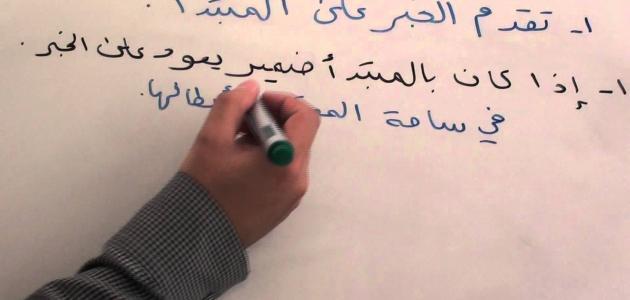 ١- تقدم الخبر على المبتدأ :
١- إذا كان بالمبتدأ ضمير يعود على الخبر .
في ساحة أبطالها.